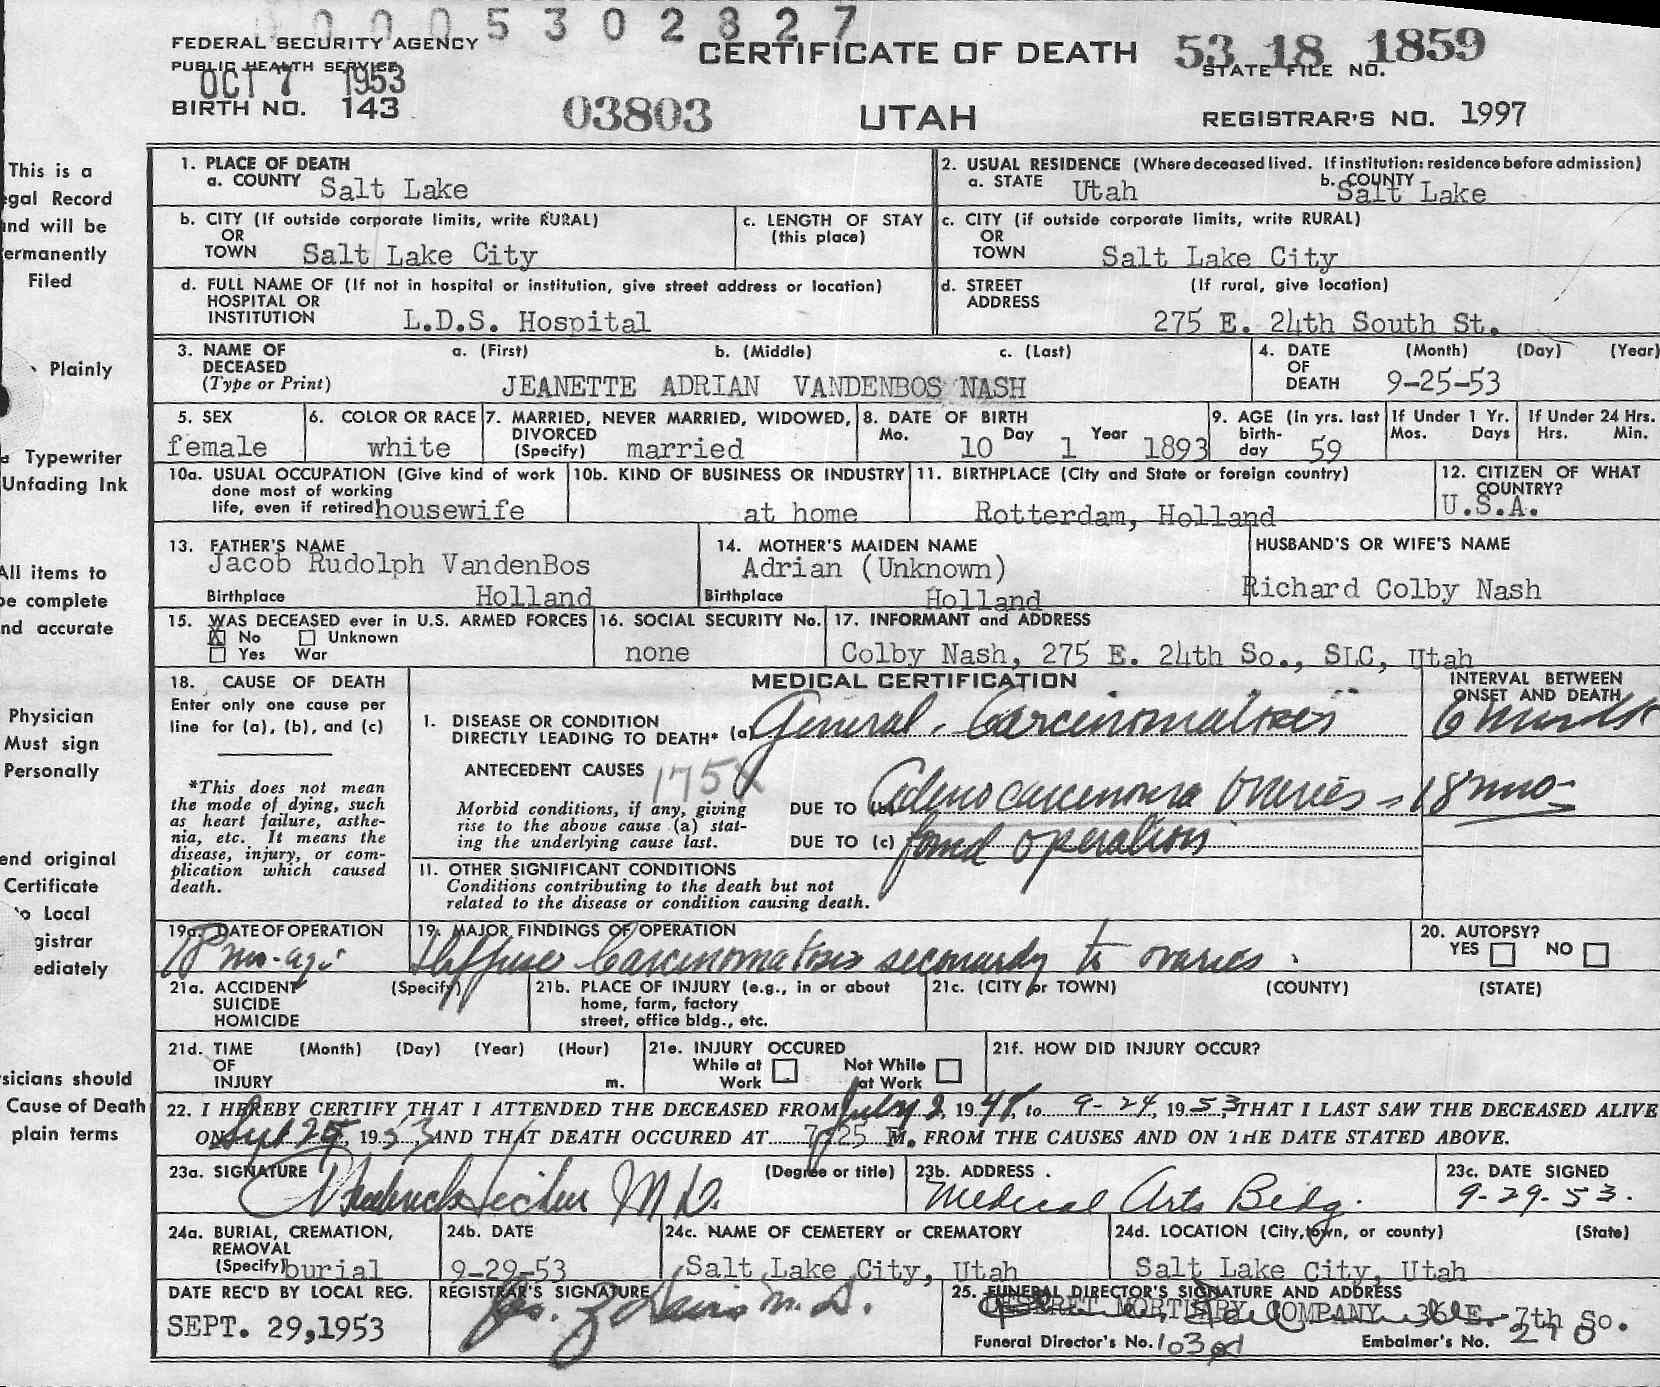 0005302827
FEDERAL SECURITY AGENCY
PUBLIC HEALTH SERVICE
OCT 7 1953
BIRTH NO. 143
03803
CERTIFICATE OF DEATH
UTAH
53 18 1859
STATE FILE NO.
REGISTRAR'S NO. 1997
This is a
egal Record
and will be
ermanently
Filed
Plainly
Typewriter
Unfading Ink
All items to
be complete
nd accurate
Physician
Must sign
Personally
end original
Certificate
to Local
gistrar
ediately
sicians should
Cause of Death
plain terms
1. PLACE OF DEATH
a. COUNTY Salt Lake
2. USUAL RESIDENCE (Where deceased lived. If institution: residence before admission)
a. STATE Utah b. COUNTY Salt Lake
b. CITY (If outside corporate limits, write RURAL)
OR
TOWN Salt Lake City
c. LENGTH OF STAY
(this place)
c. CITY (if outside corporate limits, write RURAL)
OR
TOWN Salt Lake City
d. FULL NAME OF (If not in hospital or institution, give street address or location)
HOSPITAL OR
INSTITUTION L.D.S. Hospital
d. STREET (If rural, give location)
ADDRESS
275 E. 24th South St.
3. NAME OF DECEASED (Type or Print) a. (First) b. (Middle) c. (Last)
JEANETTE ADRIAN VANDENBOS NASH
4. DATE OF DEATH (Month) (Day) (Year)
9-25-53
5. SEX
female
6. COLOR OR RACE
white
7. MARRIED, NEVER MARRIED, WIDOWED,
DIVORCED
(Specify) married
8. DATE OF BIRTH
Mo. 10 Day 1 Year 1893
9. AGE (in yrs. last
birth-
day 59
If Under 1 Yr.
Mos. Days
If Under 24 Hrs.
Hrs. Min.
10a. USUAL OCCUPATION (Give kind of work
done most of working
life, even if retired housewife
10b. KIND OF BUSINESS OR INDUSTRY
at home
11. BIRTHPLACE (City and State or foreign country)
Rotterdam, Holland
12. CITIZEN OF WHAT
COUNTRY?
U.S.A.
13. FATHER'S NAME
Jacob Rudolph VandenBos
Birthplace Holland
14. MOTHER'S MAIDEN NAME
Adrian (Unknown)
Birthplace Holland
HUSBAND'S OR WIFE'S NAME
Richard Colby Nash
15. WAS DECEASED ever in U.S. ARMED FORCES
X No Unknown
Yes War
16. SOCIAL SECURITY No.
none
17. INFORMANT and ADDRESS
Colby Nash, 275 E. 24th So., SLC, Utah
18. CAUSE OF DEATH
Enter only one cause per
line for (a), (b), and (c)
*This does not mean
the mode of dying, such
as heart failure, asthe-
nia, etc. It means the
disease, injury, or com-
plication which caused
death.
MEDICAL CERTIFICATION
INTERVAL BETWEEN
ONSET AND DEATH
1. DISEASE OR CONDITION
DIRECTLY LEADING TO DEATH* (a) General Carcinomatosis 6 months
ANTECEDENT CAUSES 175X
Morbid conditions, if any, giving
rise to the above cause (a) stat-
ing the underlying cause last.
DUE TO (b) Adenocarcinoma Ovaries - 18 mo-
DUE TO (c) found operation
11. OTHER SIGNIFICANT CONDITIONS
Conditions contributing to the death but not
related to the disease or condition causing death.
19a. DATE OF OPERATION
18 mo. ago
19. MAJOR FINDINGS OF OPERATION
Diffuse Carcinomatosis secondary to ovaries.
20. AUTOPSY?
YES NO
21a. ACCIDENT (Specify)
SUICIDE
HOMICIDE
21b. PLACE OF INJURY (e.g., in or about
home, farm, factory
street, office bldg., etc.
21c. (CITY or TOWN) (COUNTY) (STATE)
21d. TIME (Month) (Day) (Year) (Hour)
OF
INJURY m.
21e. INJURY OCCURED
While at Work Not While at Work
21f. HOW DID INJURY OCCUR?
22. I HEREBY CERTIFY THAT I ATTENDED THE DECEASED FROM July 2, 1948, to 9-24, 1953, THAT I LAST SAW THE DECEASED ALIVE
ON Sept 25, 1953, AND THAT DEATH OCCURED AT 7:25 P M. FROM THE CAUSES AND ON THE DATE STATED ABOVE.
23a. SIGNATURE (Degree or title)
M.D.
23b. ADDRESS
Medical Arts Bldg.
23c. DATE SIGNED
9-29-53.
24a. BURIAL, CREMATION,
REMOVAL
(Specify) burial
24b. DATE
9-29-53
24c. NAME OF CEMETERY or CREMATORY
Salt Lake City, Utah
24d. LOCATION (City, town, or county) (State)
Salt Lake City, Utah
DATE REC'D BY LOCAL REG.
SEPT. 29,1953
REGISTRAR'S SIGNATURE
M.D.
25. FUNERAL DIRECTOR'S SIGNATURE AND ADDRESS
DESERET MORTUARY COMPANY 36 E. 7th So.
Funeral Director's No. 103 Embalmer's No. 270